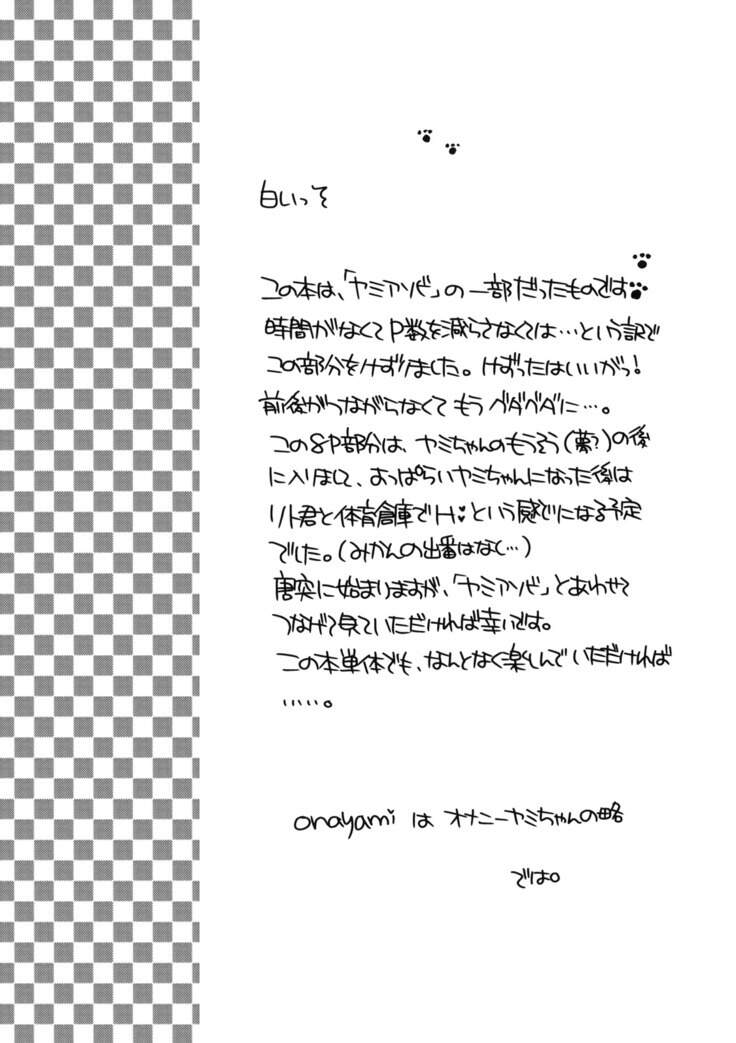 白いっそ
この本は、「ヤミアソビ」の一部だったものです
時間がなくてP数を減らさなくては…という訳で
この部分をけずりました。けずったはいいがっ!
前後がつながらなくてもうベタベタに…。
この8P部分は、ヤミちゃんのもうそう(夢?)の後
に入りまして、よっぱらいヤミちゃんになった後は
リト君と体育倉庫でH♥という感じになる予定
でした。(みかんの出番はなく…)
唐突に始まりますが、「ヤミアソビ」とあわせて
つなげて見ていただければ幸いです。
この本単体でも、なんとなく楽しんでいただければ
……。
onayami は オナニーヤミちゃんの略
では。